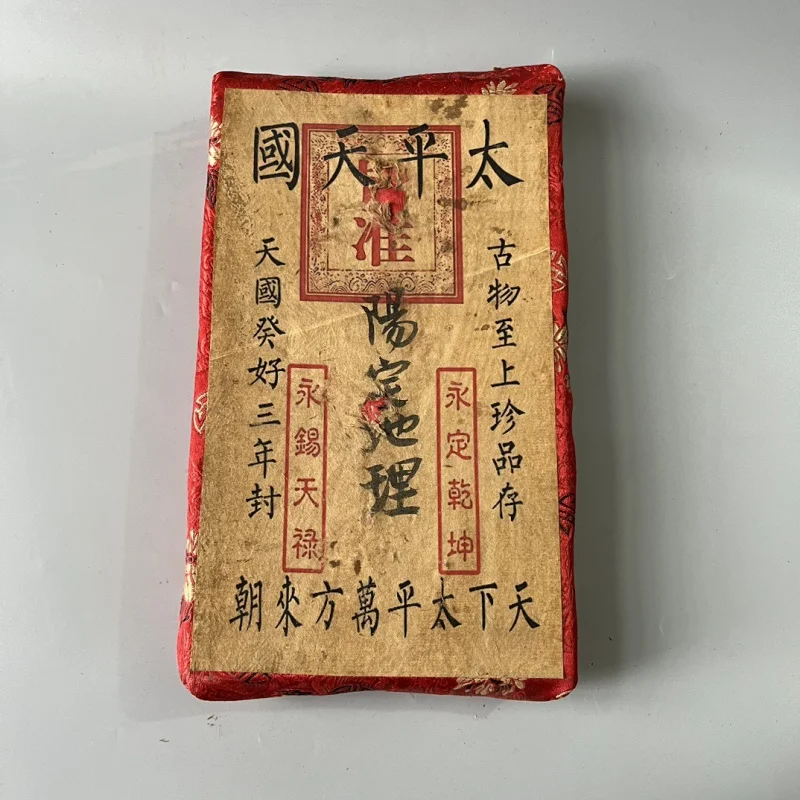 太平天國
准
古物至上珍品存
永定乾坤
陽定地理
永錫天禄
天國癸好三年封
天下太平萬方來朝